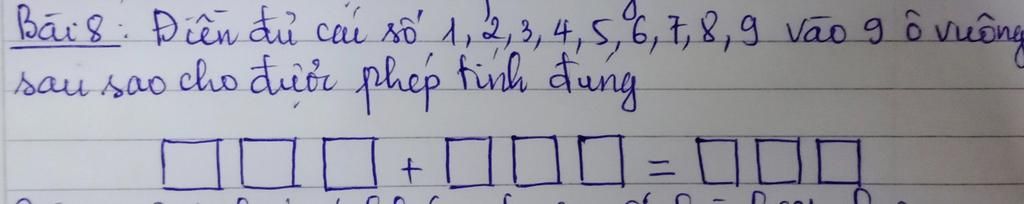 Bài 8: Điền đủ các số 1, 2, 3, 4, 5, 6, 7, 8, 9 vào 9 ô vuông
sau sao cho được phép tính đúng
□ □ □ + □ □ □ = □ □ □